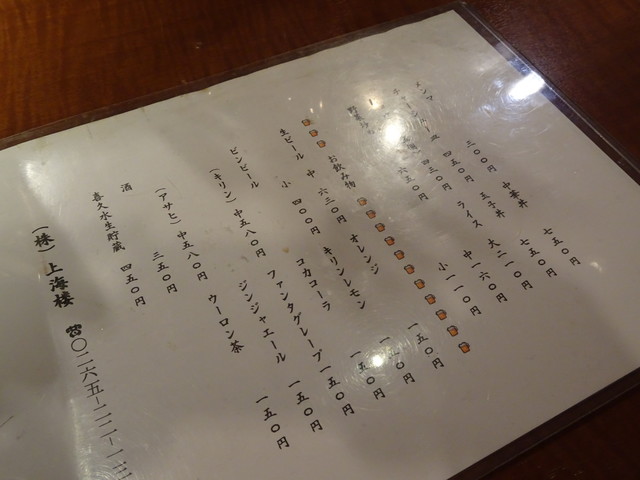 メンマ 三〇〇円 中華丼 七五〇円
チャーシュー皿 四五〇円 玉子丼 七五〇円
四三〇円 ライス 大 二一〇円
六三〇円 中 一六〇円
小 一一〇円
お飲み物
生ビール 中 六三〇円 オレンジ 一五〇円
小 四〇〇円 キリンレモン 一五〇円
コカコーラ 一五〇円
ビンビール (キリン) 中 五八〇円 ファンタグレープ 一五〇円
(アサヒ) 中 五八〇円 ジンジャエール 一五〇円
酒 三五〇円 ウーロン茶 一五〇円
喜久水生貯蔵 四五〇円
(株)上海楼 ☎〇二六五―二二―一三